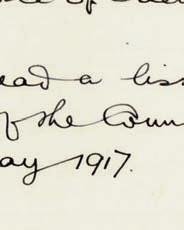 ead a lis
of the Coun
ay 1917.